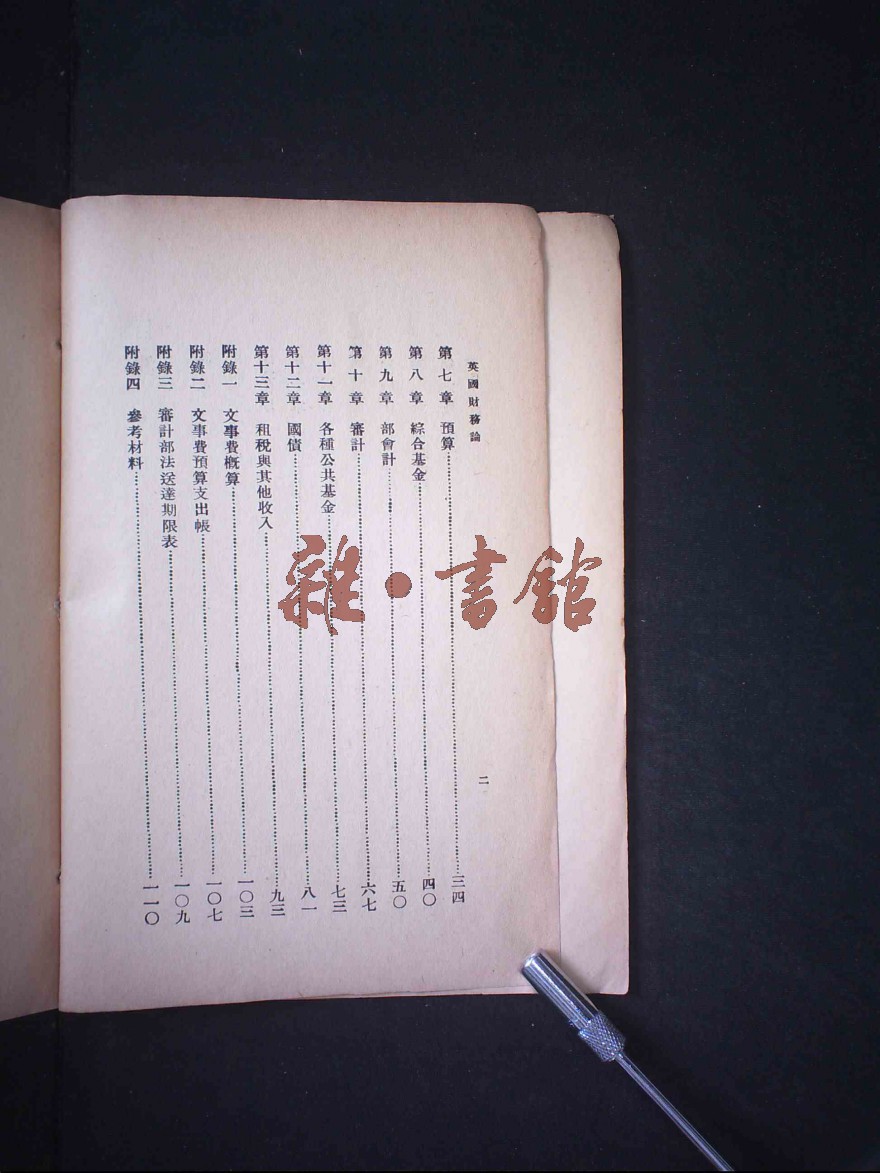 英國財務論
二
第七章 預算……三四
第八章 綜合基金……四〇
第九章 部會計……五〇
第十章 審計……六七
第十一章 各種公共基金……七三
第十二章 國債……八一
第十三章 租稅與其他收入……九三
附錄一 文事費概算……一〇三
附錄二 文事費預算支出帳……一〇七
附錄三 審計部法送達期限表……一〇九
附錄四 參考材料……一一〇
雜·書館